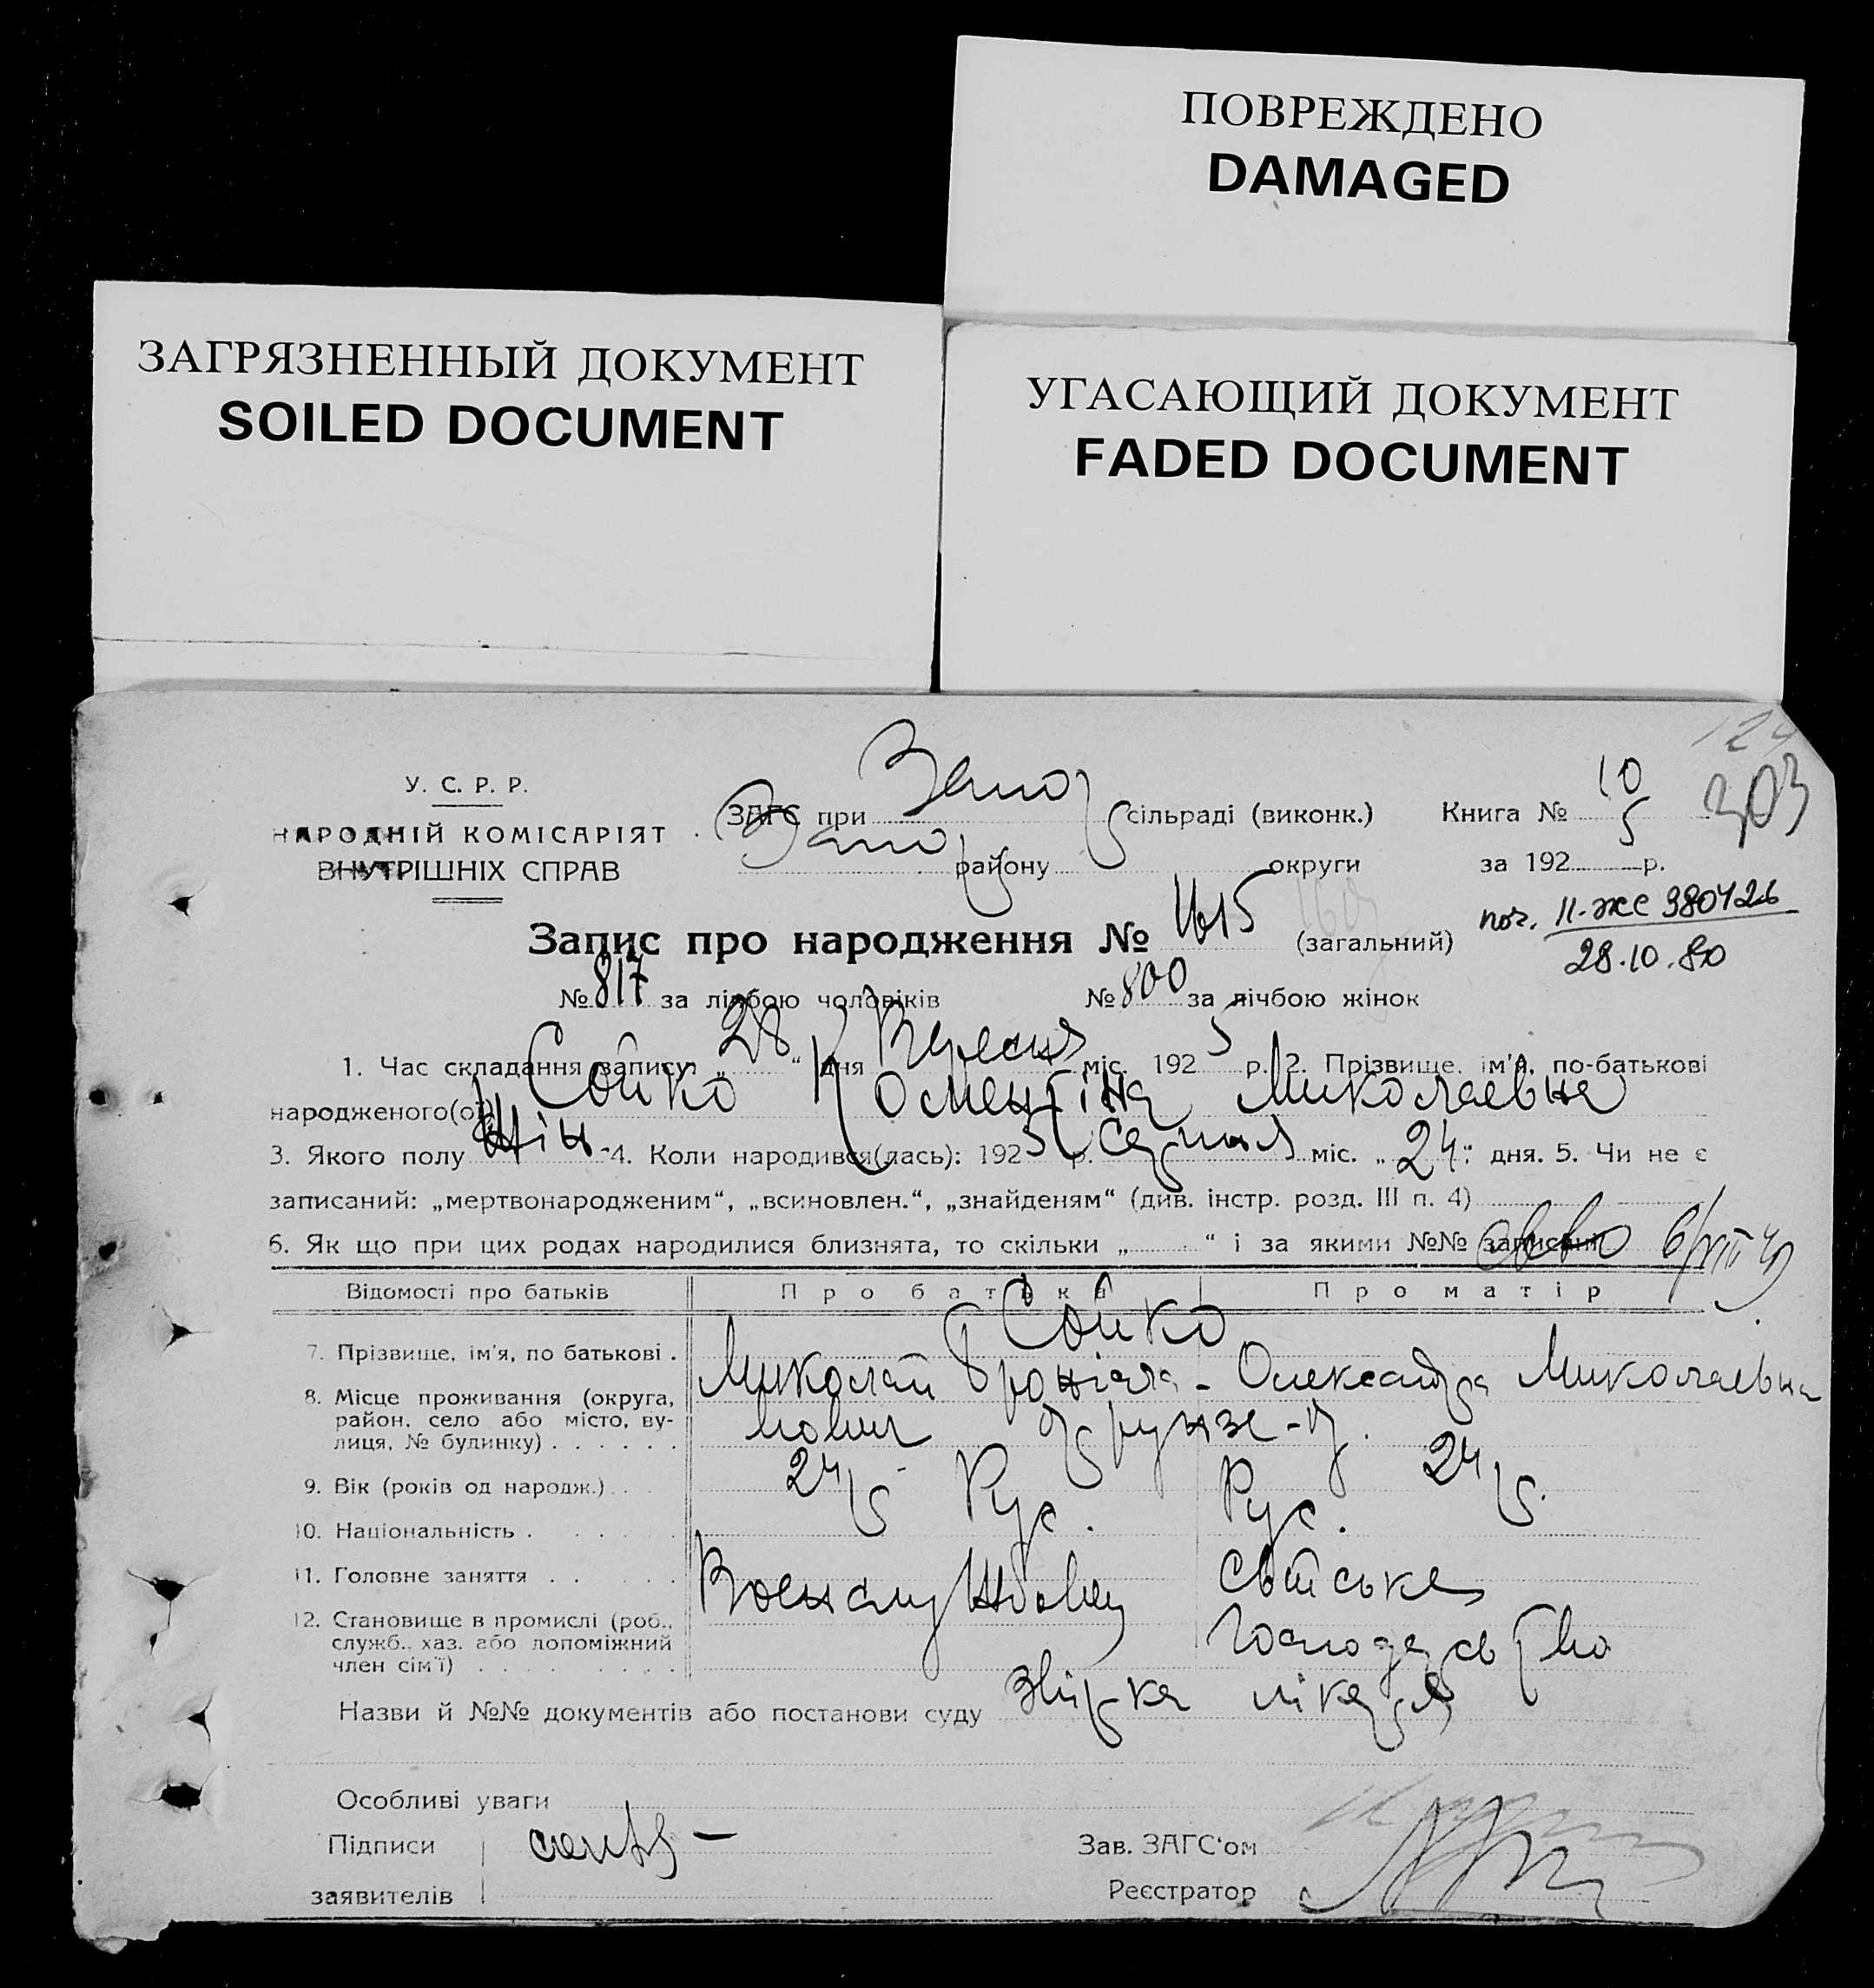 ПОВРЕЖДЕНО
DAMAGED
ЗАГРЯЗНЕННЫЙ ДОКУМЕНТ
SOILED DOCUMENT
УГАСАЮЩИЙ ДОКУМЕНТ
FADED DOCUMENT
124
303
У. С. Р. Р.
НАРОДНІЙ КОМІСАРІЯТ
ВНУТРІШНІХ СПРАВ
ЗАГС при Запор сільраді (виконк.)
Запор району округи
Книга № 10
за 192 5 р.
Запис про народження № 1615 (загальний)
пов. II-ЖС 380426
28.10.80
№ 817 за лічбою чоловіків № 800 за лічбою жінок
1. Час складання запису: „ 28 “ дня Вересня міс. 192 5 р. 2. Прізвище, ім'я, по-батькові
народженого(ої) Сойко Миколаевна
3. Якого полу Жін. 4. Коли народився(лась): 192 5 р. Серпня міс. „ 24 “ дня. 5. Чи не є
записаний: „мертвонародженим“, „всиновлен.“, „знайденям“ (див. інстр. розд. III п. 4)
6. Як що при цих родах народилися близнята, то скільки „ “ і за якими №№ записані
Відомості про батьків Про батька Про матір
Сойко
7. Прізвище, ім'я, по батькові . Миколай Олександра Миколаевна
8. Місце проживання (округа,
район, село або місто, ву-
лиця, № будинку) . . . . . . Фрунзе
9. Вік (років од народж.) . . 24 24
10. Національність . . . . . Рус. Рус.
11. Головне заняття . . . . . Военслужбовец свійське
12. Становище в промислі (роб.,
служб., хаз. або допоміжний
член сім'ї) . . . . . . . господарство
Назви й №№ документів або постанови суду Звірка лікаря
Особливі уваги
Підписи
заявителів
Зав. ЗАГС'ом
Реєстратор